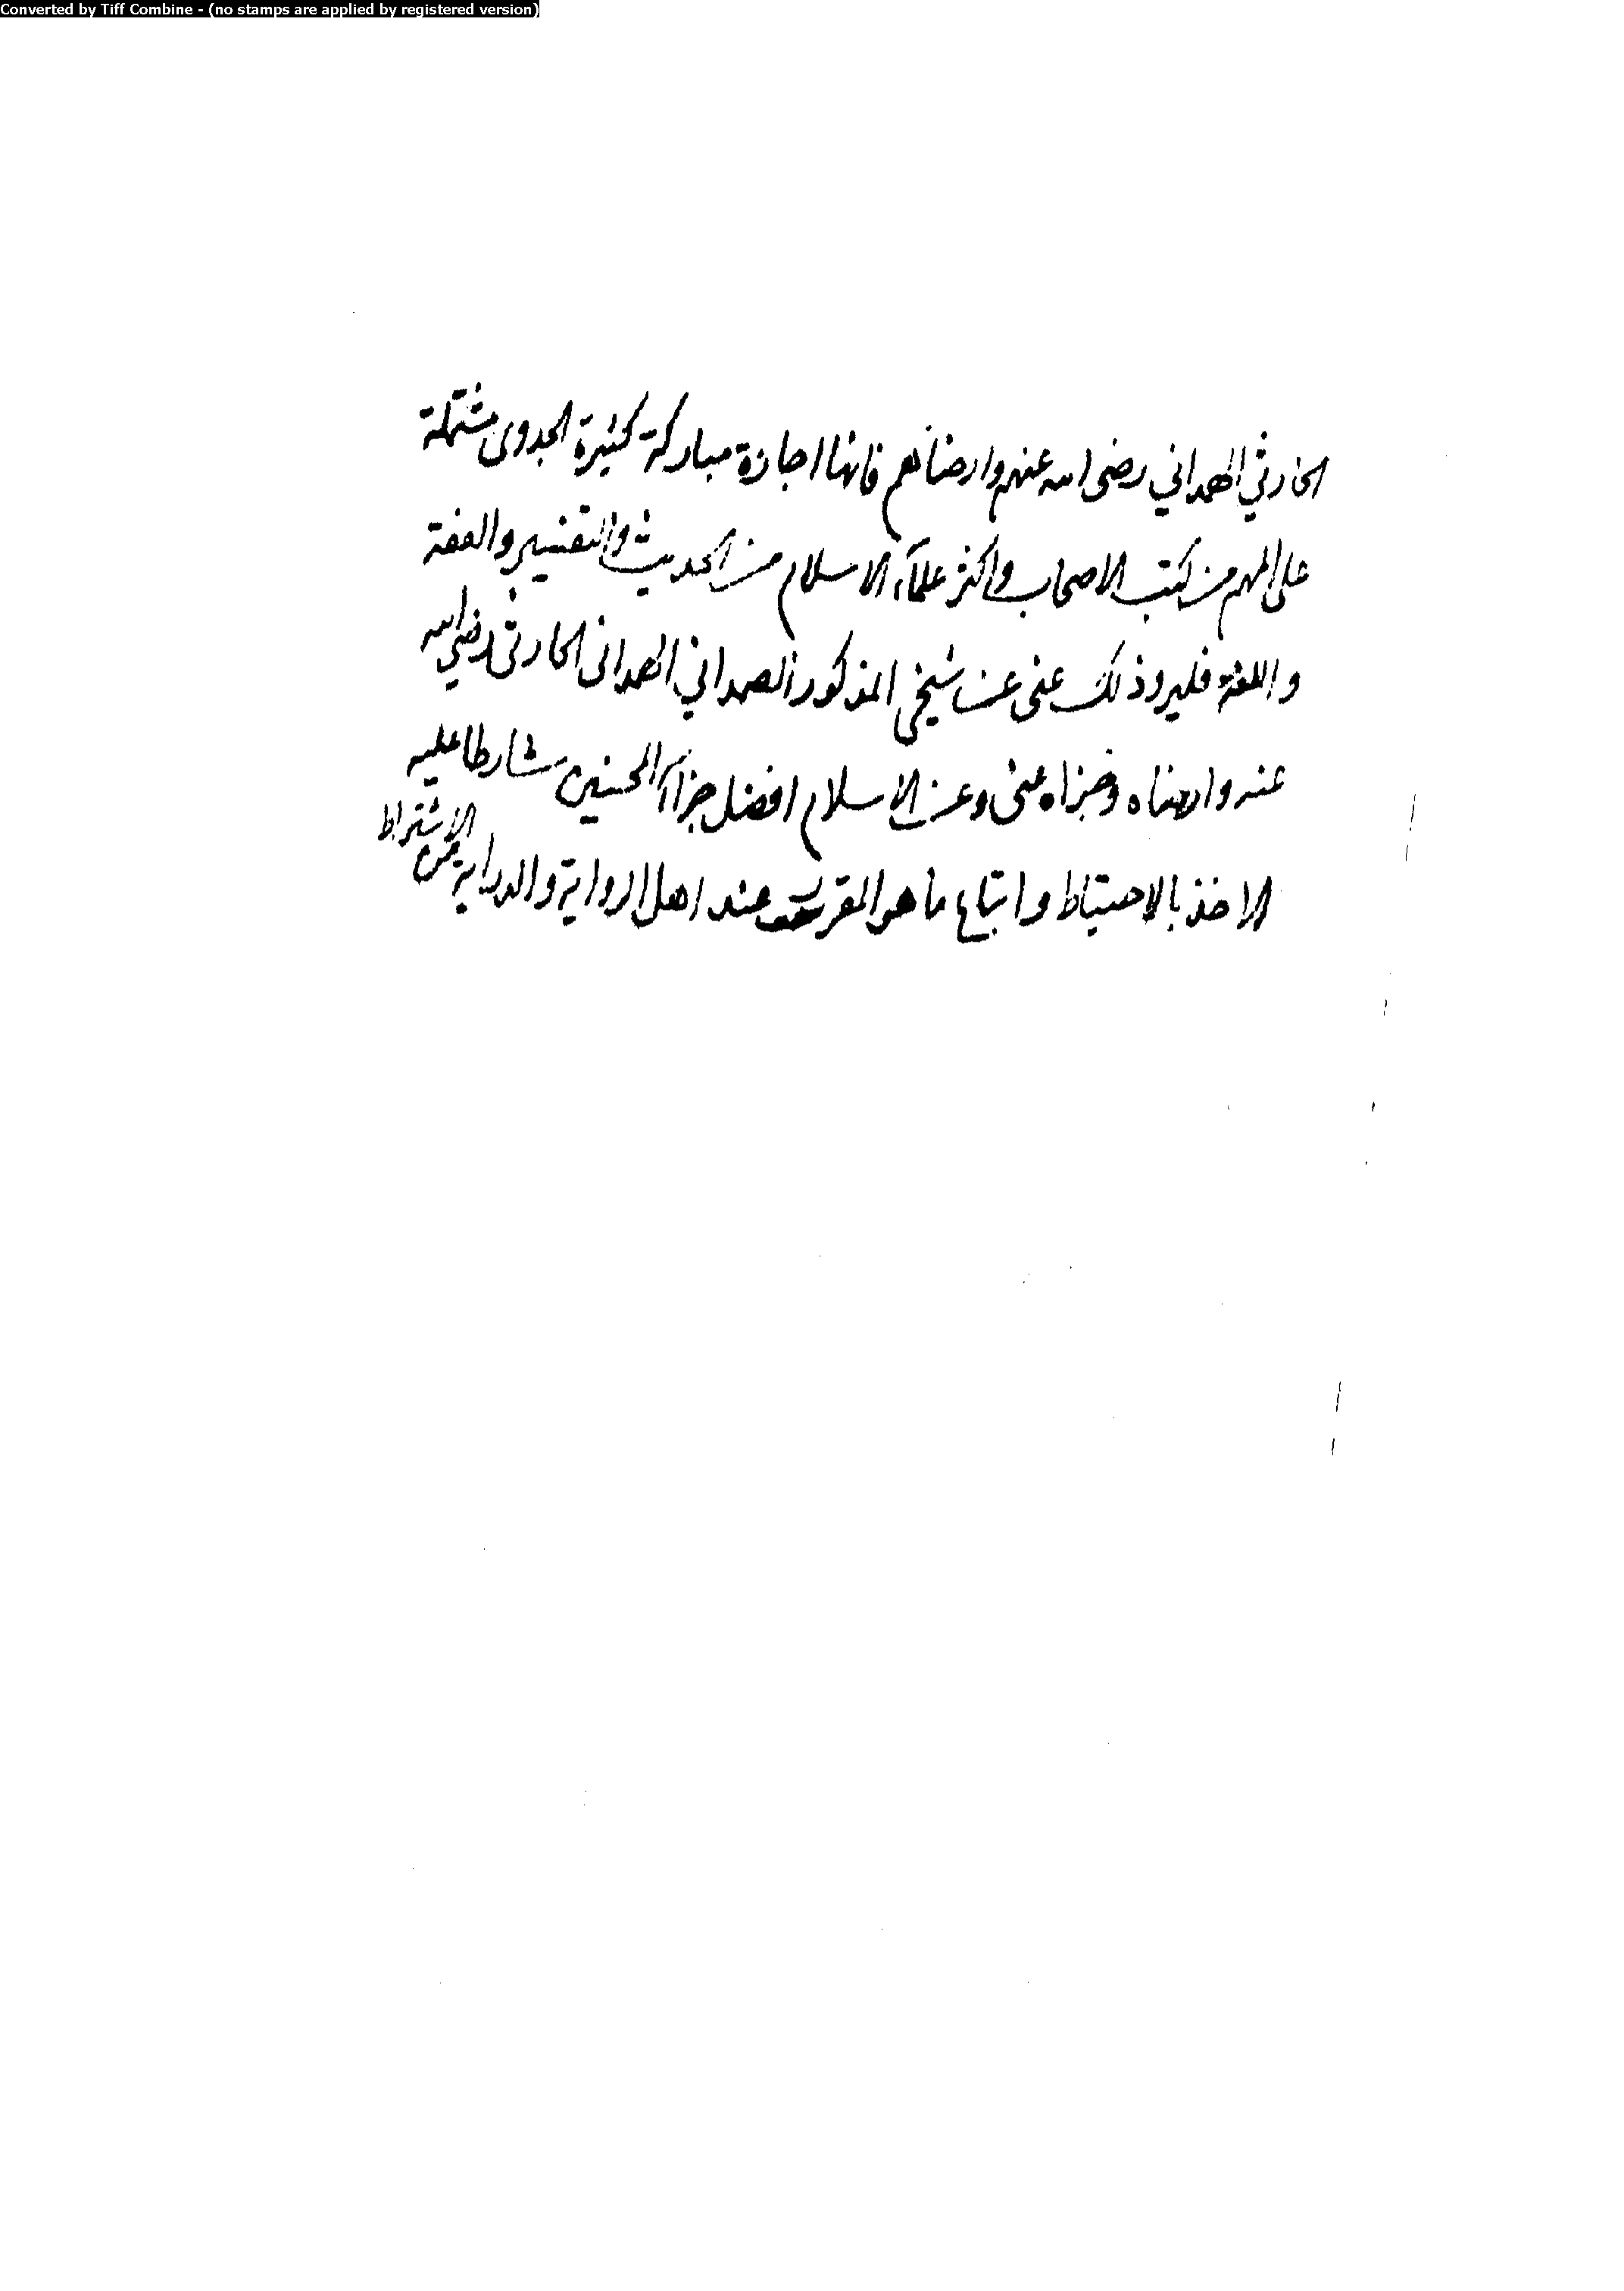 Converted by Tiff Combine - (no stamps are applied by registered version)
الحارثي الهمداني رضي الله عنهم وارضاهم فانها اجازة مباركة كثيرة الجدوى مشتملة
على المهم من كتب الاصحاب واكثر علماء الاسلام من الحديث والتفسير والفقه
واللغة فليرو ذلك عني عن شيخي المذكور الصمداني الهمداني الحارثي رضي الله
عنه وارضاه وجزاه عني وعن الاسلام افضل جزاء المحسنين شارطا عليه
الاخذ بالاحتياط واتباع ما هو المقرر عند اهل الرواية والدراية من الاشتراط